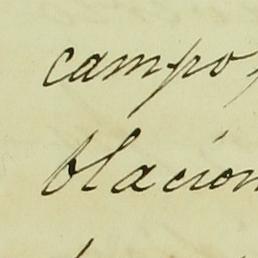 campo,
blacion